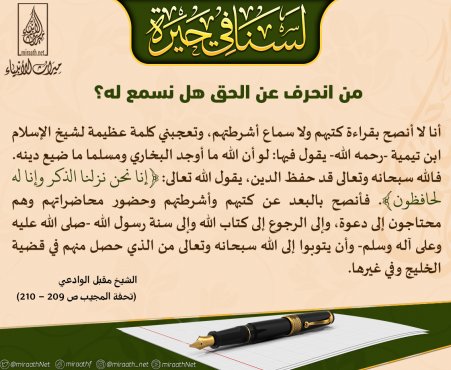 لسنا في حيرة
ميراث الأنبياء
miraath.Net
من انحرف عن الحق هل نسمع له؟
أنا لا أنصح بقراءة كتبهم ولا سماع أشرطتهم، وتعجبني كلمة عظيمة لشيخ الإسلام
ابن تيمية -رحمه الله- يقول فيها: لو أن الله ما أوجد البخاري ومسلما ما ضيع دينه.
فالله سبحانه وتعالى قد حفظ الدين، يقول الله تعالى: ﴿إنا نحن نزلنا الذكر وإنا له
لحافظون﴾. فأنصح بالبعد عن كتبهم وأشرطتهم وحضور محاضراتهم وهم
محتاجون إلى دعوة، وإلى الرجوع إلى كتاب الله وإلى سنة رسول الله -صلى الله عليه
وعلى آله وسلم- وأن يتوبوا إلى الله سبحانه وتعالى من الذي حصل منهم في قضية
الخليج وفي غيرها.
الشيخ مقبل الوادعي
(تحفة المجيب ص 209 – 210)
@miraathNet miraathf @miraath_net miraathNet